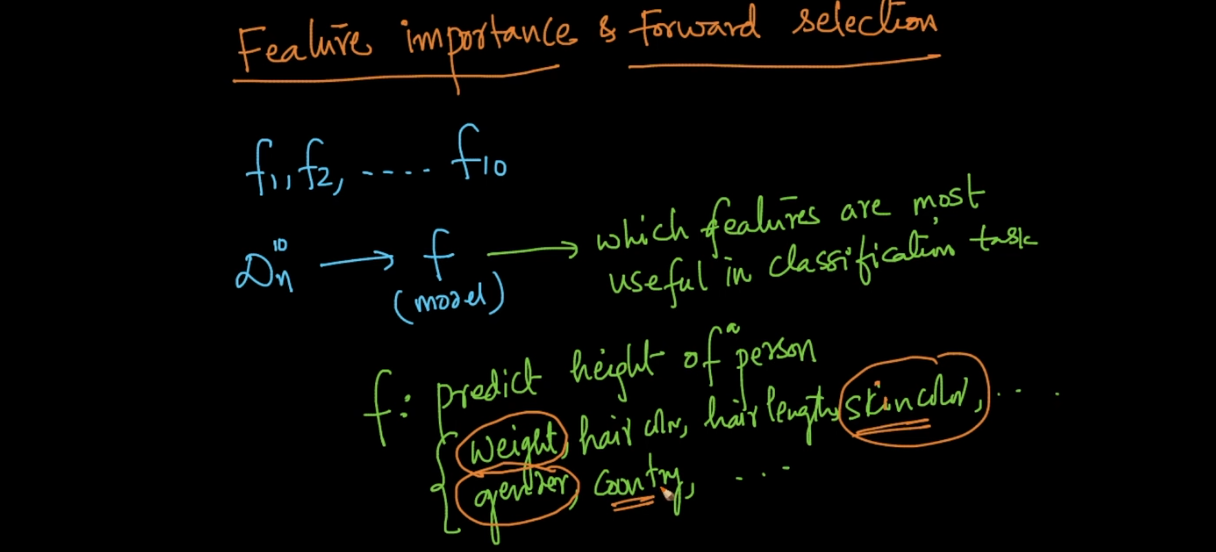 Feature importance & forward selection
f1, f2, .... f10
Dn^10 → f → which features are most
(model) useful in classification task
f: predict height of a person
weight, hair color, hair length, skin color, ....
gender, country, ...